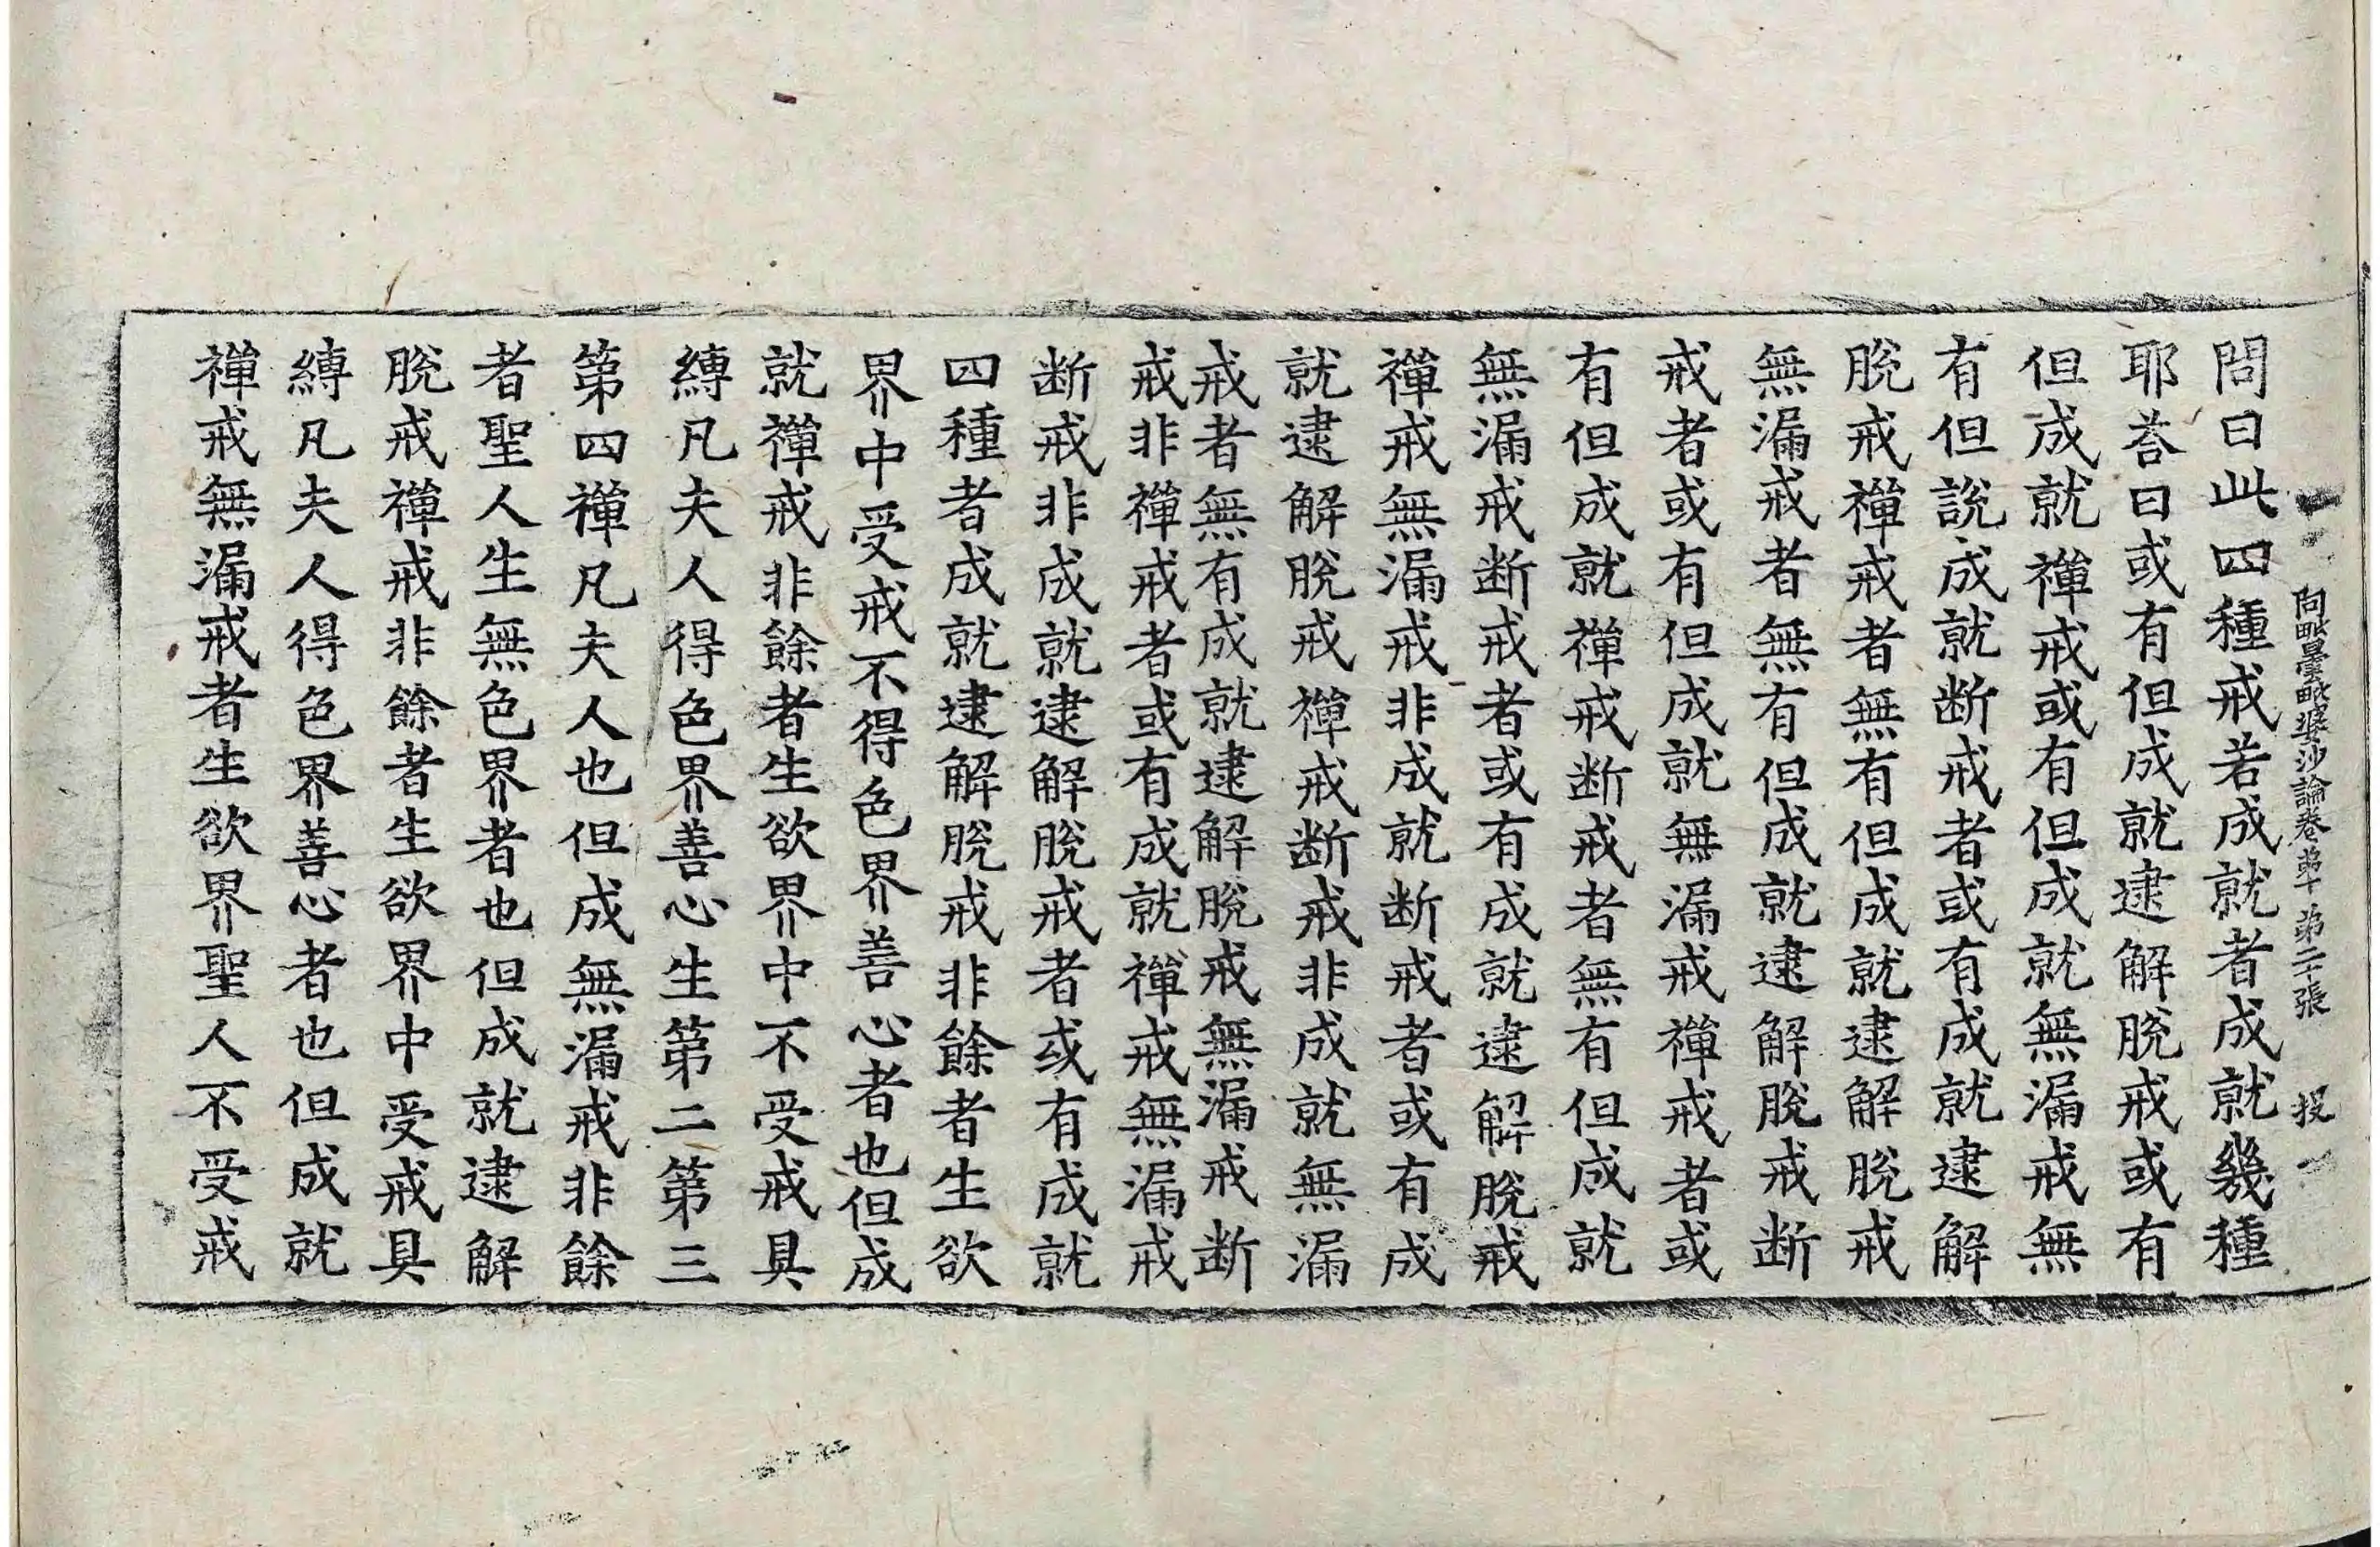 阿毗曇毗婆沙論卷第十 第二十張 投
問曰此四種戒若成就者成就幾種
耶荅曰或有但成就逮解脫戒或有
但成就禪戒或有但成就無漏戒無
有但說成就断戒者或有成就逮解
脫戒禪戒者無有但成就逮解脫戒
無漏戒者無有但成就逮解脫戒断
戒者或有但成就無漏戒禪戒者或
有但成就禪戒断戒者無有但成就
無漏戒断戒者或有成就逮解脫戒
禪戒無漏戒非成就断戒者或有成
就逮解脫戒禪戒断戒非成就無漏
戒者無有成就逮解脫戒無漏戒断
戒非禪戒者或有成就禪戒無漏戒
断戒非成就逮解脫戒者或有成就
四種者成就逮解脫戒非餘者生欲
界中受戒不得色界善心者也但成
就禪戒非餘者生欲界中不受戒具
縛凡夫人得色界善心生第二第三
第四禪凡夫人也但成無漏戒非餘
者聖人生無色界者也但成就逮解
脫戒禪戒非餘者生欲界中受戒具
縛凡夫人得色界善心者也但成就
禪戒無漏戒者生欲界聖人不受戒